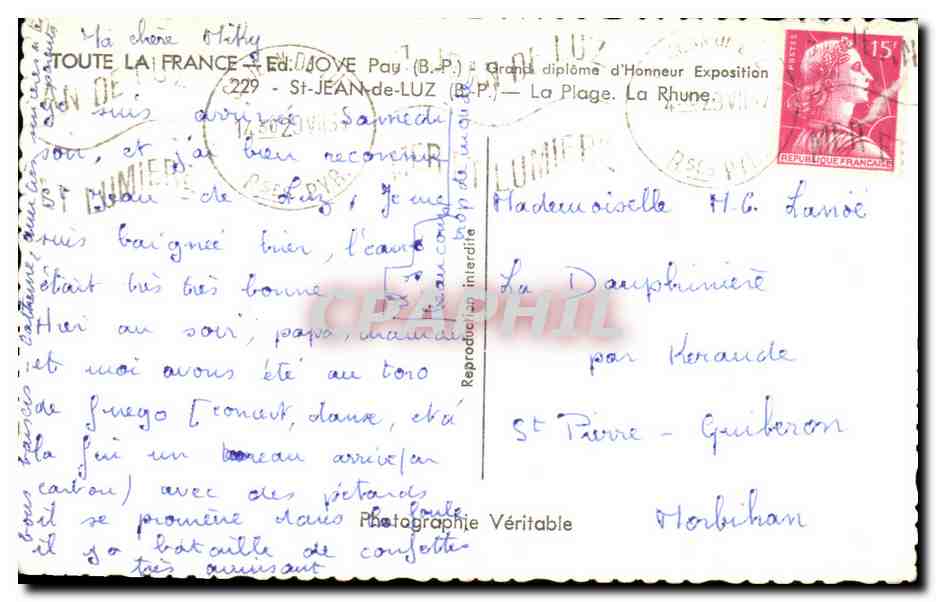 Ma chère Miky
TOUTE LA FRANCE — Ed. JOVE Pau (B.-P.) - Grand diplôme d'Honneur Exposition
229 - St-JEAN-de-LUZ (B.-P.) — La Plage. La Rhune.
Je suis arrivée Samedi
soir, et j'ai bien reconnu
St Jean-de-Luz, Je me
suis baignée hier, l'eau
était très très bonne
Hier au soir, papa, maman
et moi avons été au toro
de fuego [concert, danse, et à
la fin un taureau arrive (en
carton) avec des pétards
il se promène dans la foule
il y a bataille de confettis
très amusant
beaucoup
trop de monde
vous baisers - Catherine
Reproduction interdite
Photographie Véritable
Mademoiselle M.C. Lanoé
La Dauphinière
par Keraude
St Pierre - Quiberon
Morbihan
POSTES
15F
REPUBLIQUE FRANCAISE
ST JEAN DE LUZ
MER
LUMIERE
Bses PYR.
CPAPHIL